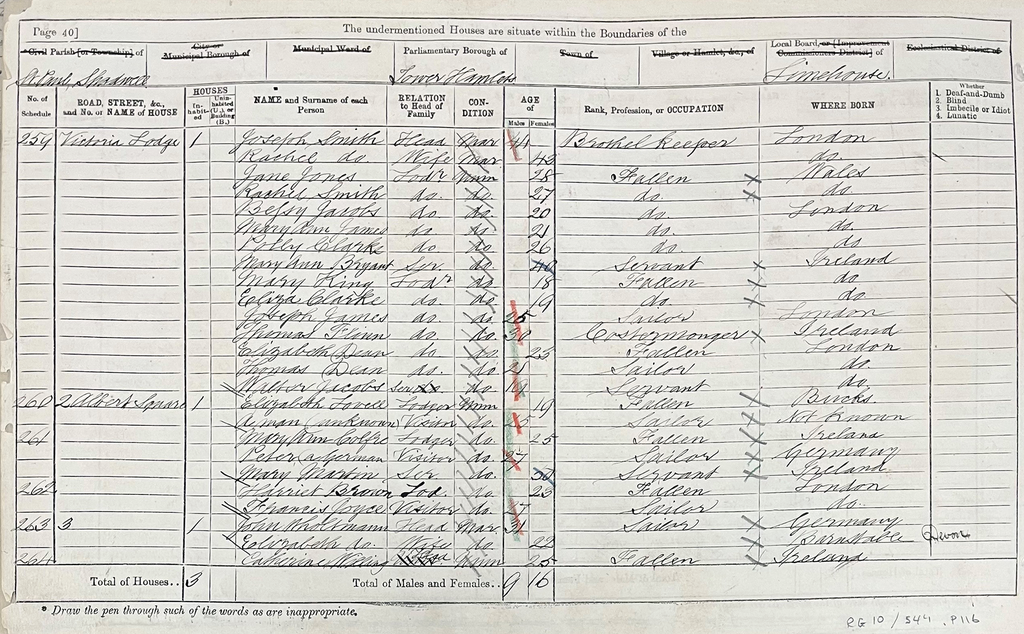 Page 40]
The undermentioned Houses are situate within the Boundaries of the
* Civil Parish [or Township] of
City or Municipal Borough of
Municipal Ward of
Parliamentary Borough of
Town of
Village or Hamlet, &c., of
Local Board, or [Improvement Commissioners District] of
Ecclesiastical District of
St Paul, Shadwell
Tower Hamlets
Limehouse
No. of Schedule
ROAD, STREET, &c., and No. or NAME of HOUSE
HOUSES
Inhabited
Uninhabited (U.), or Building (B.)
NAME and Surname of each Person
RELATION to Head of Family
CONDITION
AGE of
Males
Females
Rank, Profession, or OCCUPATION
WHERE BORN
Whether
1. Deaf-and-Dumb
2. Blind
3. Imbecile or Idiot
4. Lunatic
259 Victoria Lodge 1 Joseph Smith Head Mar 44 Brothel Keeper London
Rachel do. Wife Mar 43 do.
Jane Jones Lodr Unm 28 Fallen Wales
Rachel Smith do. do. 27 do. do
Bessy Jacobs do. do. 20 do. London
Mary Ann James do do. 21 do. do.
Polly Clarke do do. 26 do. do
Mary Ann Bryant Ser. do. 40 Servant Ireland
Mary King Lodr do. 18 Fallen do.
Eliza Clarke do. do. 19 do. do
Joseph James do do. 25 Sailor London
Thomas Flinn do. do. 30 Costermonger Ireland
Elizabeth Dean do. do. 23 Fallen London
Thomas Dean do. do 21 Sailor do.
Walter Jacobs Ser do. 19 Servant do.
260 2 Albert Square 1 Elizabeth Lovell Lodger Unm 19 Fallen Bucks
A man (unknown) Visitor do. 25 Sailor Not Known
261 Mary Ann Lodger do. 25 Fallen Ireland
Peter Visitor do. 27 Sailor Germany
Mary Martin Ser do. 50 Servant Ireland
262 Harriet Brown Lod. do. 23 Fallen London
Francis Joyce Visitor do. Sailor do.
263 3 1 John Head Mar. 31 Sailor Germany
Elizabeth do. Wife do. 22 Barnstable Devon
264 Catherine Unm 25 Fallen Ireland
Total of Houses.. 3 Total of Males and Females.. 9 16
* Draw the pen through such of the words as are inappropriate.
RG 10 / 544 . P116